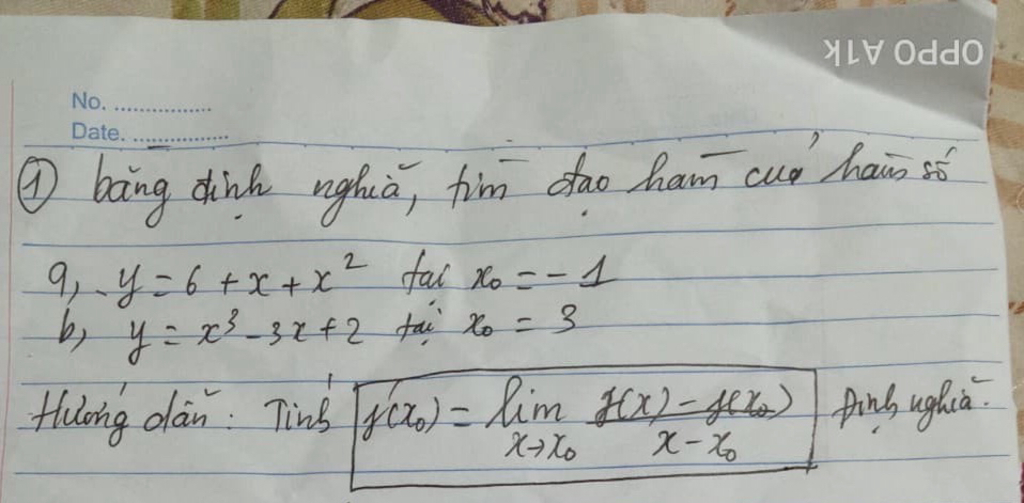 OPPO A1k
No. ................
Date. ................
① bằng định nghĩa, tìm đạo hàm của hàm số
a, y = 6 + x + x² tại x₀ = -1
b, y = x³ - 3x + 2 tại x₀ = 3
Hướng dẫn: Tính f'(x₀) = lim x→x₀ f(x) - f(x₀) / x - x₀ Định nghĩa.